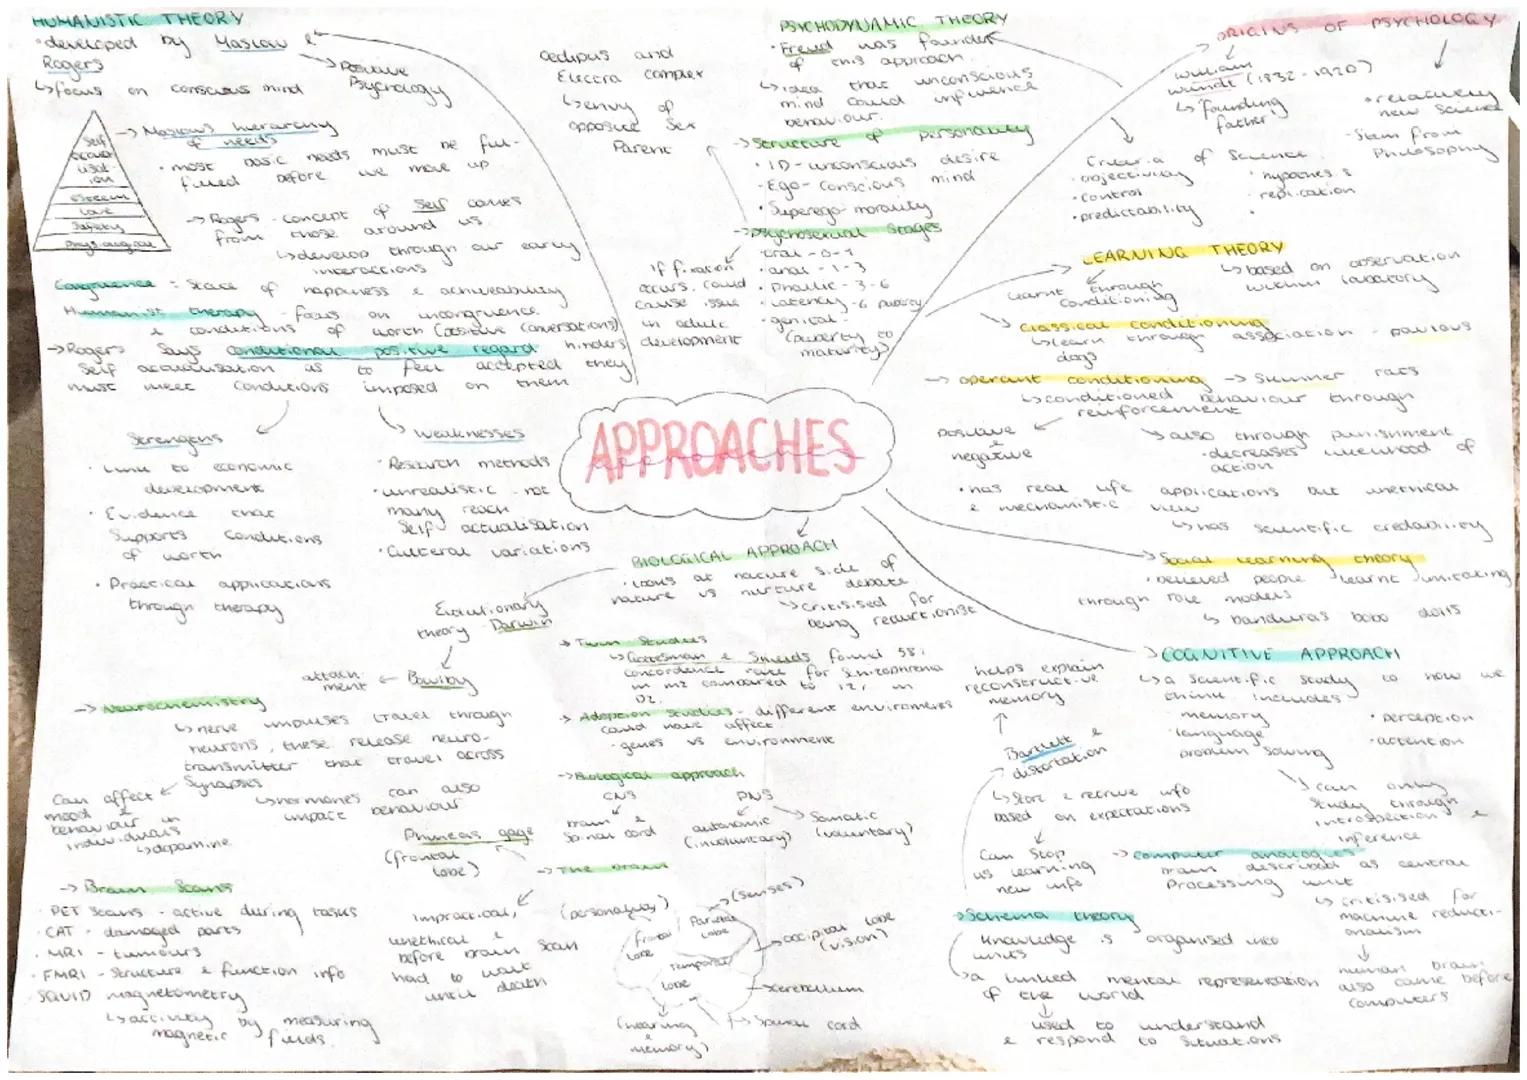 HUMANISTIC THEORY
• developed by Maslow &
Rogers
↳ focus on conscious mind
→ Positive
Psychology
Self
actual-
isat-
ion
esteem
love
safety
physiological
→ Maslows hierarchy
of needs
• most basic needs must be ful-
filled before we move up
→ Rogers - concept of self comes
from those around us.
↳ develop through our early
interactions
Congruence = state of happiness & achieveability
Humanist therapy - focus on incongruence
& conditions of worth (positive conversations)
→ Rogers says conditional positive regard hinders
self actualisation as to feel accepted they
must meet conditions imposed on them
Strengths
• Link to economic
development
• Evidence that
supports conditions
of worth
• Practical applications
through therapy
Weaknesses
• Research methods
• unrealistic - not
many reach
self actualisation
• Culteral variations
Oedipus and
Electra complex
↳ envy of
opposite sex
Parent
PSYCHODYNAMIC THEORY
• Freud was founder
of this approach.
↳ idea that unconscious
mind could influence
behaviour.
→ Structure of personality
• ID - unconscious desire
• Ego - Conscious mind
• Superego - morality
→ Psychosexual Stages
• oral - 0-1
• anal - 1-3
• Phallic - 3-6
• Latency - 6 puberty
• genital -
(puberty to
maturity)
If fixation
occurs, could
cause issue
in adult
development
ORIGINS OF PSYCHOLOGY
William
wundt (1832-1920)
↳ founding
father
• relatively
new science
- Stem from
Philosophy
Criteria of Science
• objectivity
• control
• predictability
• hypothesis
• replication
•
LEARNING THEORY
learnt through
conditioning
↳ based on observation
within labatory
↘ classical conditioning
↳ learn through association - pavlovs
dogs
→ operant conditioning → Skinner rats
↳ conditioned behaviour through
reinforcement
positive
&
negative
↳ also through punishment
• decreases likelihood of
action
• has real life applications but unethical
& mechanistic view
↳ has scientific credability
→ Social learning theory
• believed people learnt imitating
through role models
↳ banduras bobo dolls
APPROACHES
approaches
BIOLOGICAL APPROACH
• looks at nature side of
nature vs nurture debate
↳ critisised for
being reductionist
Evolutionary
theory - Darwin
Bowlby
attach-
ment
→ Twin Studies
↳ Gottesman & Shields found 58%
concordance rate for schizophrenia
in MZ compared to 12% in
DZ.
→ Adoption studies - different enviroments
could have affect
- genes vs environment
→ Neurochemistry
↳ nerve impulses travel through
neurons, these release neuro-
transmitter that travel across
synapses
Can affect
mood &
behaviour in
individuals
↳ dopamine
↳ hormones can also
impact behaviour
→ Biological approach
CNS
brain &
spinal cord
PNS
autonomic
(involuntary)
Somatic
(voluntary)
→ The brain
Phineas gage
(frontal
lobe)
impractical,
unethical &
before brain scan
had to wait
until death
(personality)
frontal
lobe
Parietal
lobe
(senses)
temporal
lobe
occipital lobe
(vision)
cerebellum
spinal cord
(hearing
&
memory)
→ Brain Scans
• PET Scans - active during tasks
• CAT - damaged parts
• MRI - tumours
• FMRI - structure & function info
SQUID magnetometry
↳ activity by measuring
magnetic fields.
COGNITIVE APPROACH
↳ a scientific study to how we
think. includes:
• memory
• language
• problem solving
• perception
• attention
↳ can only
study through
introspection &
inference
helps explain
reconstructive
memory
Bartlett &
distortation
↳ store & retrieve info
based on expectations
Can stop
us learning
new info
→ computer analogies
brain described as central
processing unit
↳ critisised for
machine reducti-
onalism
human brain
also came before
computers
→ Schema theory
knowledge is organised into
units
↳ a linked mental representation
of the world
used to understand
& respond to situations